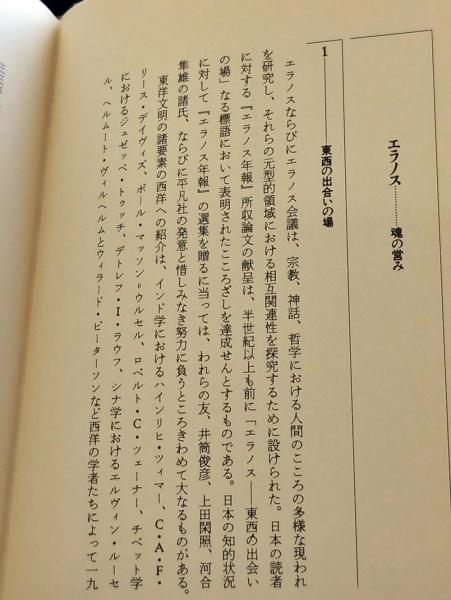 エラノス………魂の営み
1――東西の出合いの場
エラノスならびにエラノス会議は、宗教、神話、哲学における人間のこころの多様な現われ
を研究し、それらの元型的領域における相互関連性を探究するために設けられた。日本の読者
に対する『エラノス年報』所収論文の献呈は、半世紀以上も前に「エラノス――東西の出会い
の場」なる標語において表明されたこころざしを達成せんとするものである。日本の知的状況
に対して『エラノス年報』の選集を贈るに当っては、われらの友、井筒俊彦、上田閑照、河合
隼雄の諸氏、ならびに平凡社の発意と惜しみなき努力に負うところきわめて大なるものがある。
東洋文明の諸要素の西洋への紹介は、インド学におけるハインリヒ・ツィマー、C・A・F・
リース・デイヴィズ、ポール・マッソン＝ウルセル、ロベルト・C・ツェーナー、チベット学
におけるジュゼッペ・トゥッチ、デトレフ・I・ラウフ、シナ学におけるエルヴィン・ルーセ
ル、ヘルムート・ヴィルヘルムとウィラード・ピーターソンなど西洋の学者たちによって一九